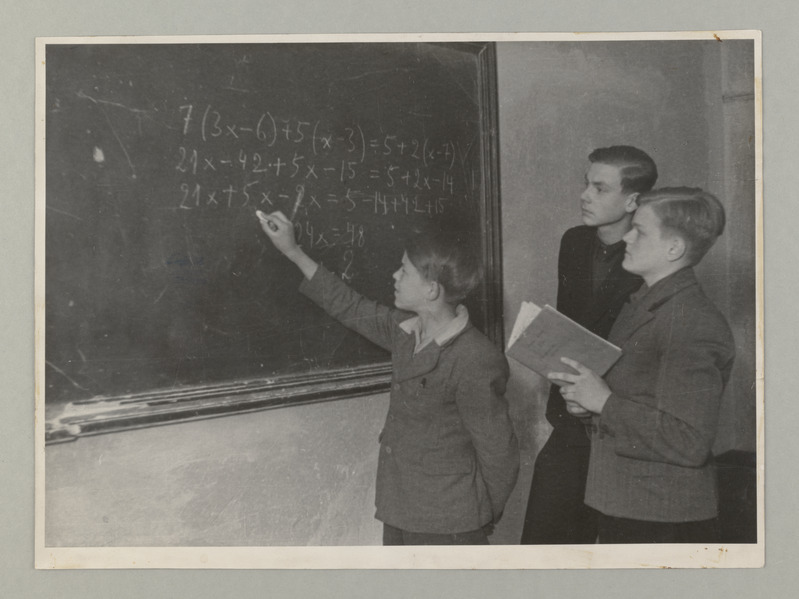 7(3x-6)+5(x-3)=5+2(x-7)
21x-42+5x-15=5+2x-14
21x+5x-2x=5-14+42+15
24x=48
2